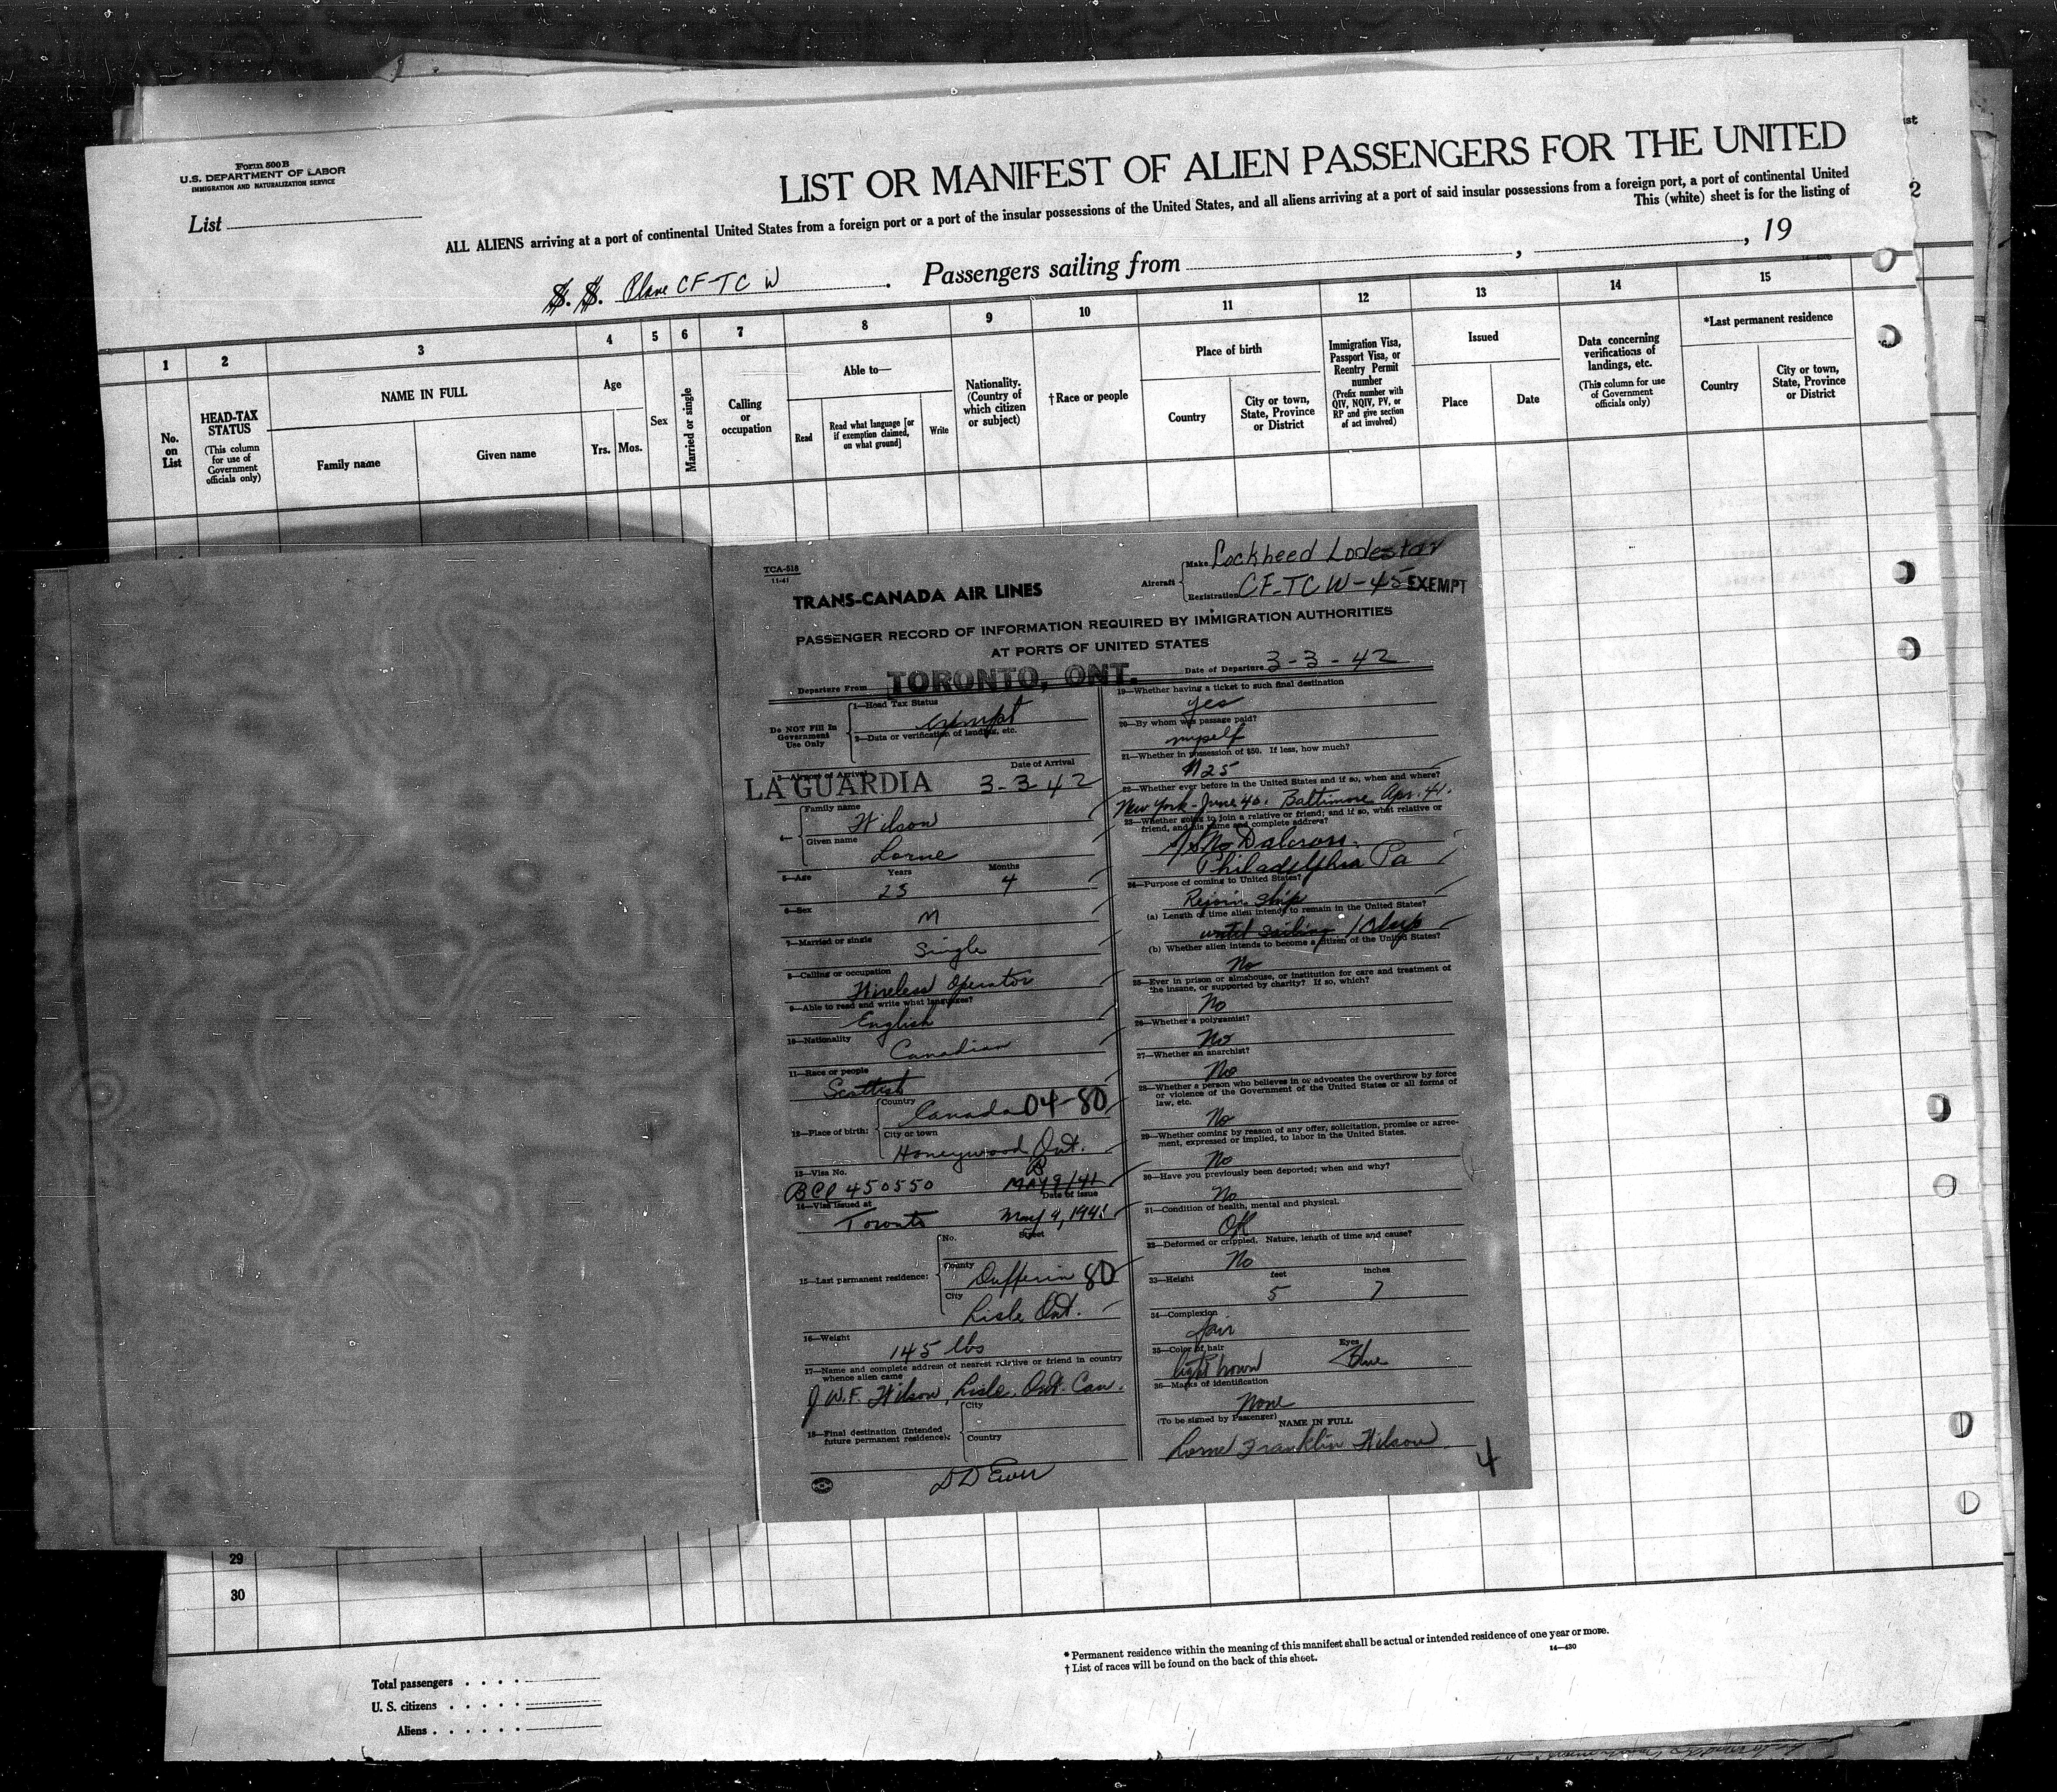 Form 500 B
U.S. DEPARTMENT OF LABOR
IMMIGRATION AND NATURALIZATION SERVICE
List
LIST OR MANIFEST OF ALIEN PASSENGERS FOR THE UNITED
ALL ALIENS arriving at a port of continental United States from a foreign port or a port of the insular possessions of the United States, and all aliens arriving at a port of said insular possessions from a foreign port, a port of continental United
This (white) sheet is for the listing of
S. S. Plane CF-TCW Passengers sailing from , , 19
1 2 3 4 5 6 7 8 9 10 11 12 13 14 15
No. on List
HEAD-TAX STATUS
(This column for use of Government officials only)
NAME IN FULL
Family name
Given name
Age
Yrs. Mos.
Sex
Married or single
Calling or occupation
Able to—
Read
Read what language [or if exemption claimed, on what ground]
Write
Nationality. (Country of which citizen or subject)
†Race or people
Place of birth
Country
City or town, State, Province or District
Immigration Visa, Passport Visa, or Reentry Permit number
(Prefix number with QIV, NQIV, PV, or RP and give section of act involved)
Issued
Place
Date
Data concerning verifications of landings, etc.
(This column for use of Government officials only)
*Last permanent residence
Country
City or town, State, Province or District
TCA-518
11-41
TRANS-CANADA AIR LINES
Aircraft
Make Lockheed Lodestar
Registration CF-TCW-45 EXEMPT
PASSENGER RECORD OF INFORMATION REQUIRED BY IMMIGRATION AUTHORITIES
AT PORTS OF UNITED STATES
Departure From TORONTO, ONT.
Date of Departure 3-3-42
Do NOT Fill In Government Use Only
1—Head Tax Status
exempt
2—Data or verification of landing, etc.
3—Airport of Arrival
Date of Arrival
LA GUARDIA 3-3-42
4—
Family name
Wilson
Given name
Lorne
5—Age Years Months
23 4
6—Sex
M
7—Married or single
Single
8—Calling or occupation
Wireless Operator
9—Able to read and write what languages?
English
10—Nationality
Canadian
11—Race or people
Scottish
12—Place of birth:
Country
Canada 04-80
City or town
Honeywood Ont.
13—Visa No.
BCC 450550
MAY 9/41
Date of issue
14—Visa issued at
Toronto May 9, 1941
15—Last permanent residence:
No. Street
County
Dufferin 80
City
Lisle Ont.
16—Weight
145 lbs
17—Name and complete address of nearest relative or friend in country whence alien came
J W.F. Wilson, Lisle, Ont. Can.
18—Final destination (Intended future permanent residence):
City
Country
19—Whether having a ticket to such final destination
yes
20—By whom was passage paid?
myself
21—Whether in possession of $50. If less, how much?
$125
22—Whether ever before in the United States and if so, when and where?
New York-June 40. Baltimore Apr. 41.
23—Whether going to join a relative or friend; and if so, what relative or friend, and his name and complete address?
Dalcross
Philadelphia Pa
24—Purpose of coming to United States?
Rejoin ship
(a) Length of time alien intends to remain in the United States?
until sailing
(b) Whether alien intends to become a citizen of the United States?
No
25—Ever in prison or almshouse, or institution for care and treatment of the insane, or supported by charity? If so, which?
No
26—Whether a polygamist?
No
27—Whether an anarchist?
No
28—Whether a person who believes in or advocates the overthrow by force or violence of the Government of the United States or all forms of law, etc.
No
29—Whether coming by reason of any offer, solicitation, promise or agreement, expressed or implied, to labor in the United States.
No
30—Have you previously been deported; when and why?
No
31—Condition of health, mental and physical.
OK
32—Deformed or crippled. Nature, length of time and cause?
No
33—Height feet inches
5 7
34—Complexion
fair
35—Color of hair Eyes
light brown Blue
36—Marks of identification
None
(To be signed by Passenger) NAME IN FULL
Lorne Franklin Wilson
4
29
30
Total passengers
U. S. citizens
Aliens
* Permanent residence within the meaning of this manifest shall be actual or intended residence of one year or more.
† List of races will be found on the back of this sheet.
14—430